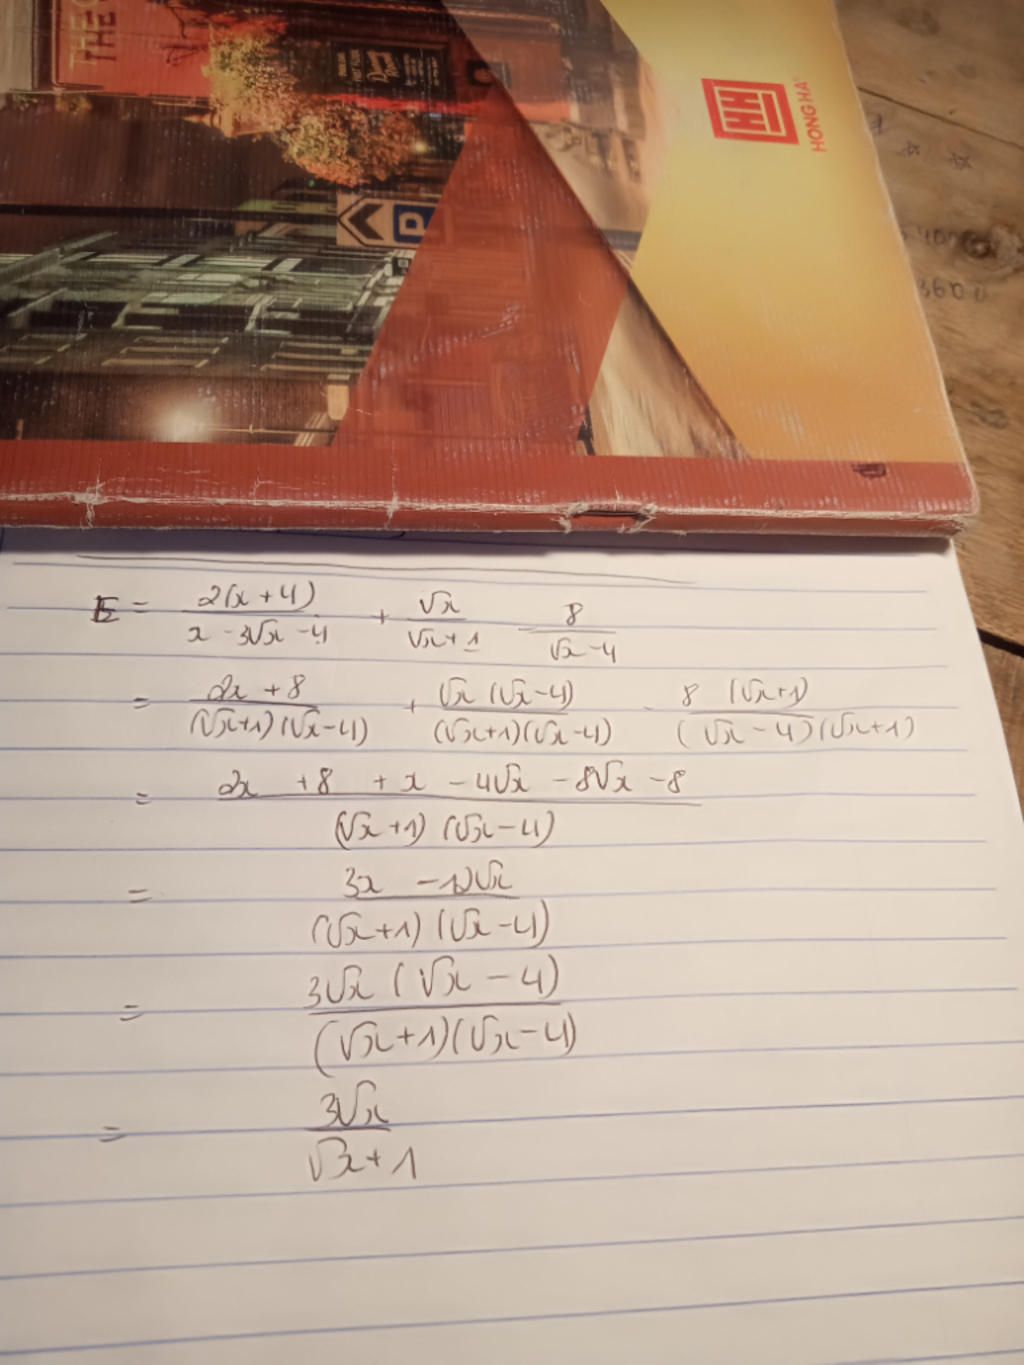 THE
THE
P
HH
HONG HA
3600
E = 2(x + 4) / (x - 3√x - 4) + √x / (√x + 1) - 8 / (√x - 4)
= (2x + 8) / ((√x+1)(√x-4)) + √x(√x-4) / ((√x+1)(√x-4)) - 8(√x+1) / ((√x-4)(√x+1))
= (2x + 8 + x - 4√x - 8√x - 8) / ((√x+1)(√x-4))
= (3x - 12√x) / ((√x+1)(√x-4))
= 3√x(√x - 4) / ((√x+1)(√x-4))
= 3√x / (√x + 1)